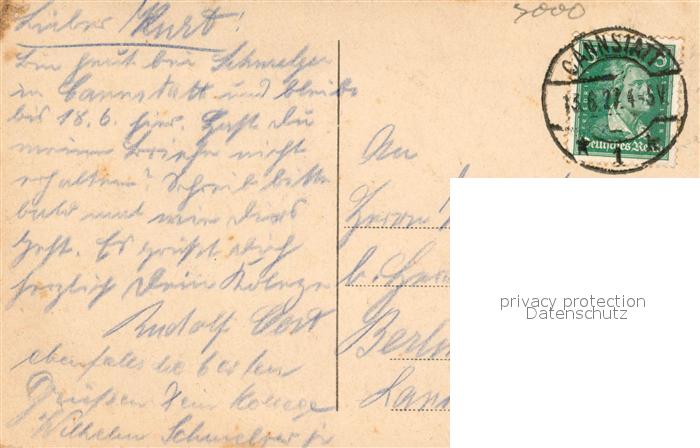 5000
Lieber Kurt!
Bin heut bei Schmelzer
in Cannstatt und bleibe
bis 18.6. hier. Hast du
meinen Briefe nicht
erhalten? Schreib bitte
bald mal wie Dirs
geht. Es grüßt Dich
herzlich Dein Kollege
Rudolf
ebenfalls die besten
Grüßen Dein Kollege
Wilhelm Schmelzer jr
CANNSTATT
13.6.27. 4-5V.
* 1 k
Deutsches Reich
An
Herrn
b.
Berlin
privacy protection
Datenschutz